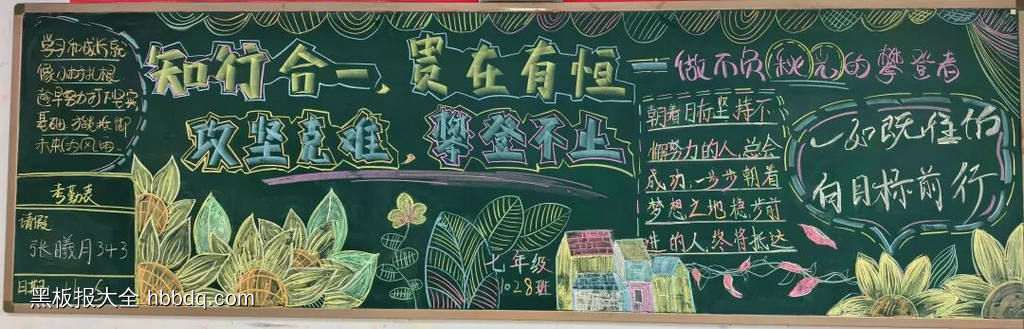 学习和成长就
像小树扎根
趁早努力打坚实
基础 才能抵御
未来的风雨.
考勤表
请假
张曦月343
日期
知行合一,贵在有恒
攻坚克难,攀登不止
七年级
1028班
做不负秋光的攀登者
朝着目标坚持不
懈努力的人,总会
成功,一步步朝着
梦想之地稳步前
进的人,终将抵达
一如既往的
向目标前行
黑板报大全 hbbdq.com